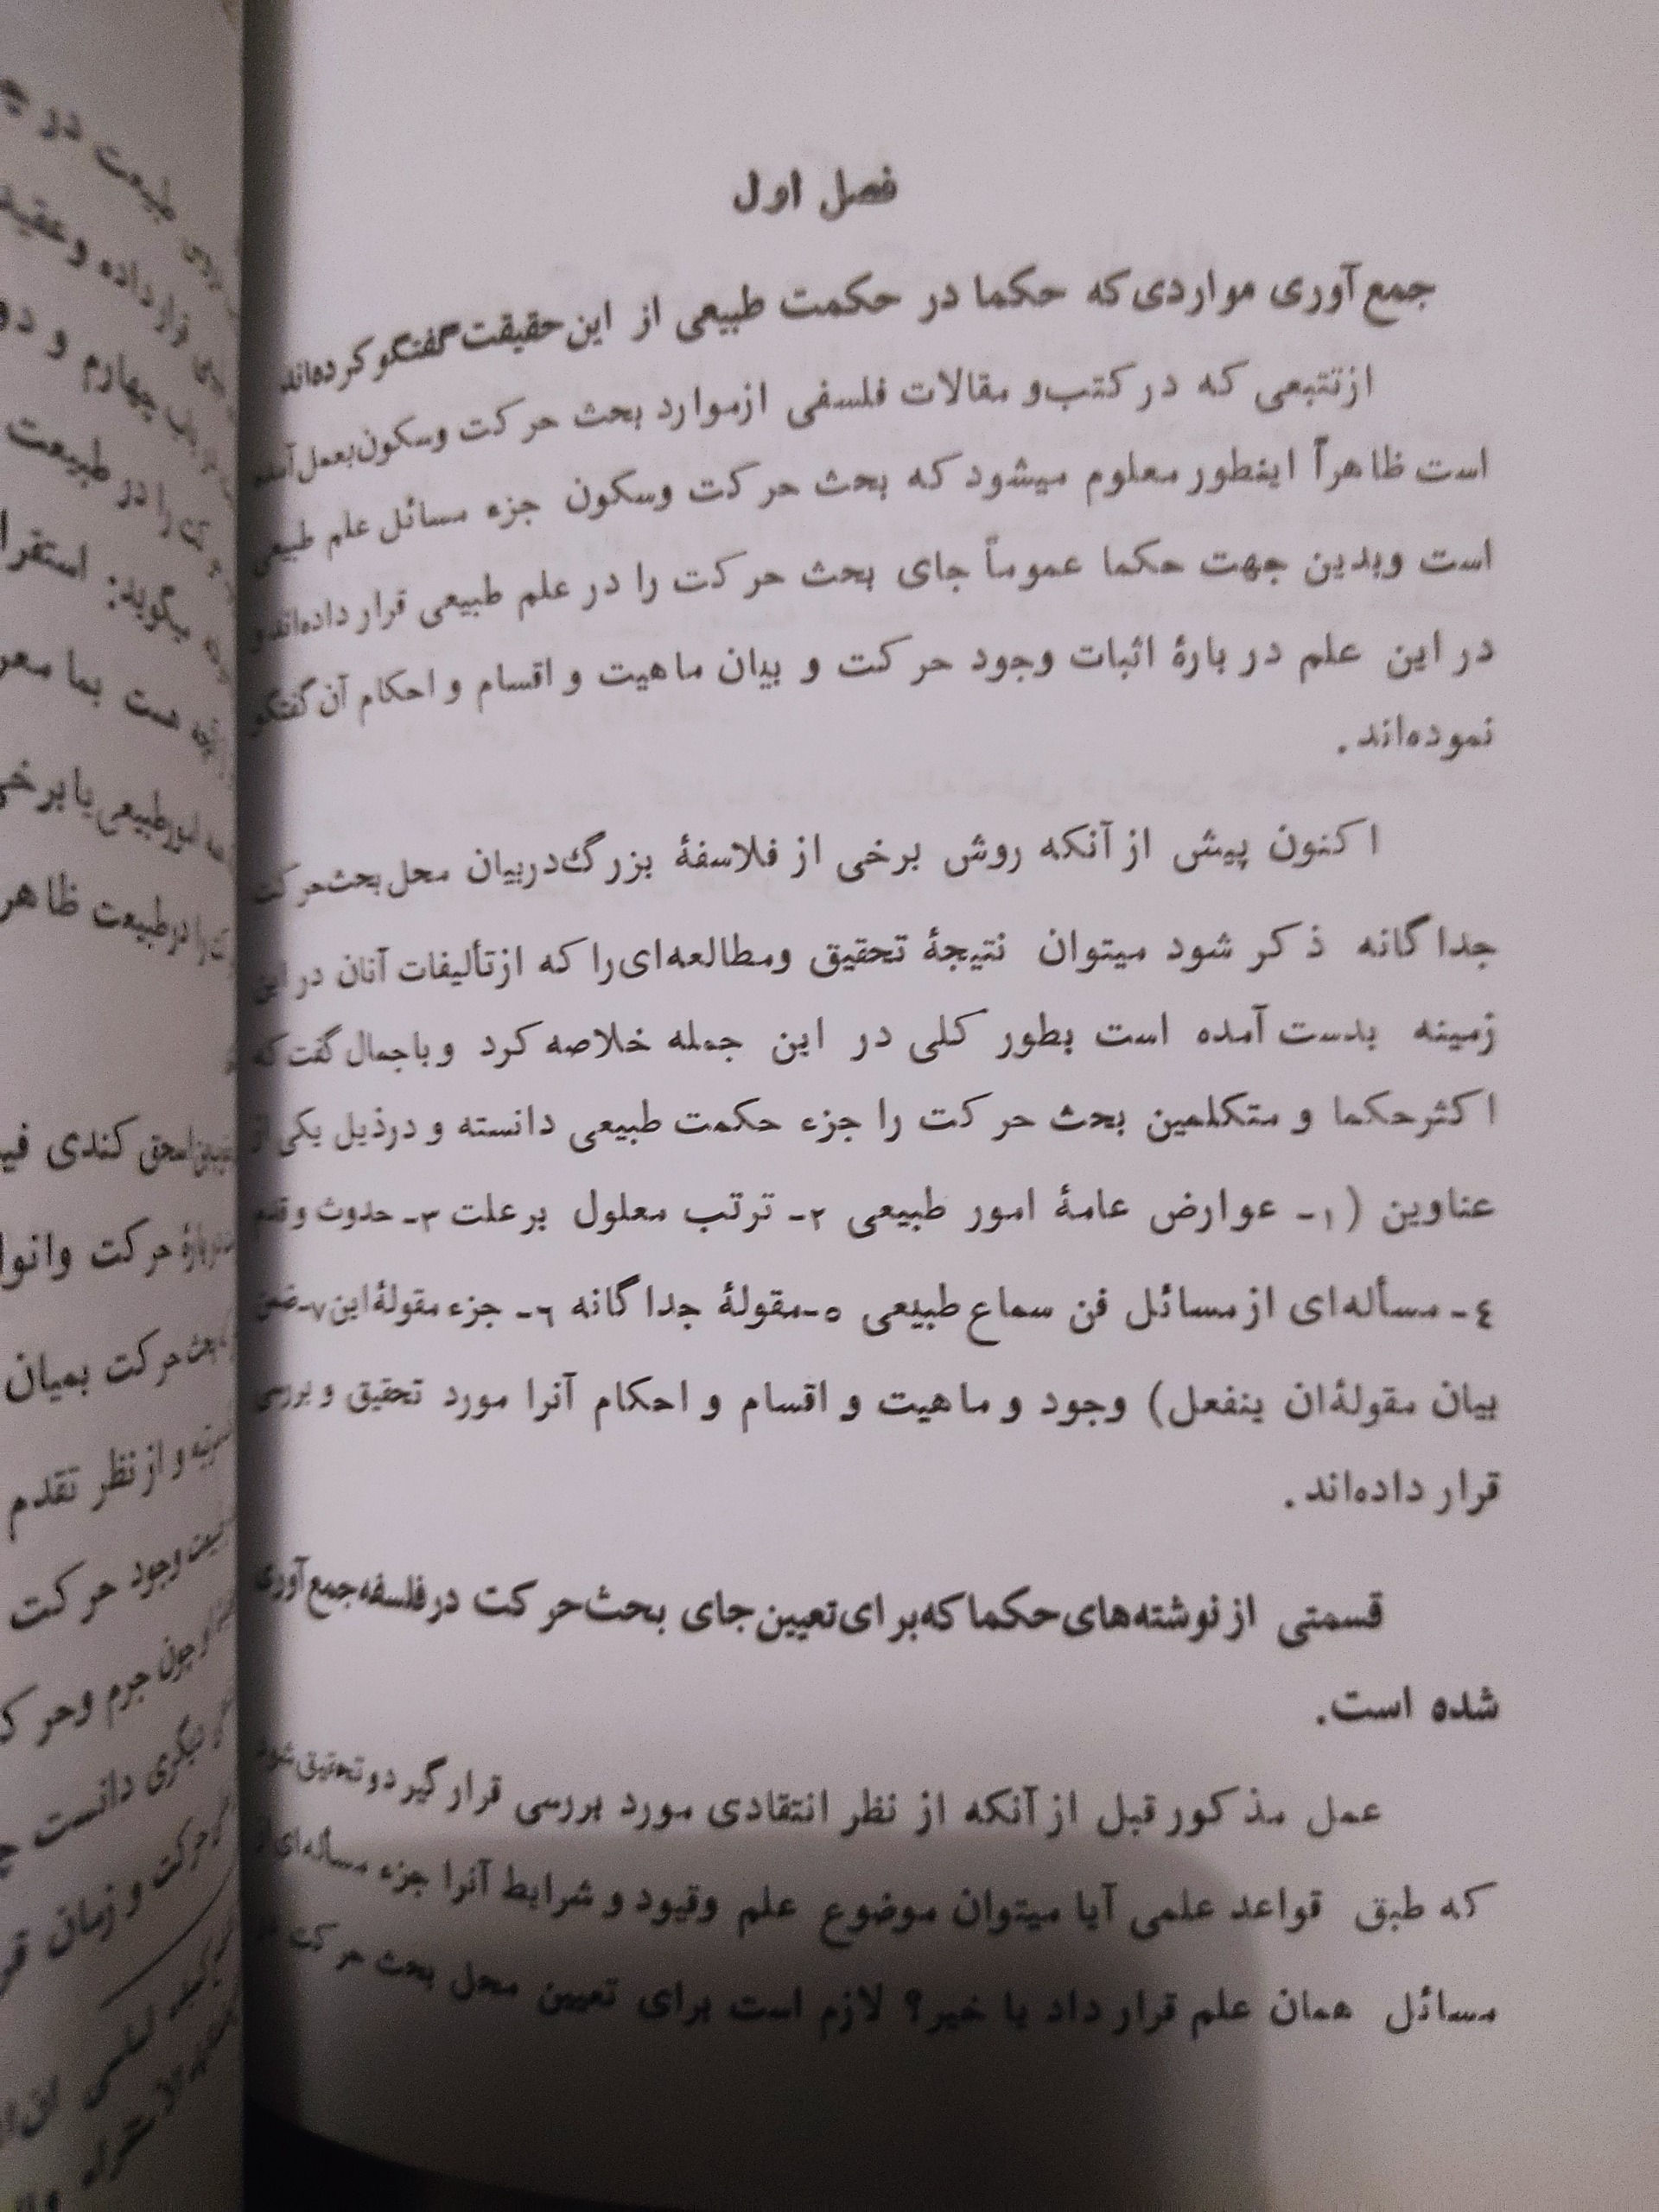 فصل اول
جمع‌آوری مواردی که حکما در حکمت طبیعی از این حقیقت گفتگو کرده‌اند
از تتبعی که در کتب و مقالات فلسفی از موارد بحث حرکت وسکون بعمل آمده
است ظاهراً اینطور معلوم میشود که بحث حرکت وسکون جزء مسائل علم طبیعی
است وبدین جهت حکما عموماً جای بحث حرکت را در علم طبیعی قرار داده‌اند و
در این علم در بارۀ اثبات وجود حرکت و بیان ماهیت و اقسام و احکام آن گفتگو
نموده‌اند.
اکنون پیش از آنکه روش برخی از فلاسفۀ بزرگ در بیان محل بحث حرکت
جداگانه ذکر شود میتوان نتیجۀ تحقیق ومطالعه‌ای را که از تألیفات آنان در این
زمینه بدست آمده است بطور کلی در این جمله خلاصه کرد و باجمال گفت که
اکثر حکما و متکلمین بحث حرکت را جزء حکمت طبیعی دانسته و در ذیل یکی از
عناوین (۱- عوارض عامۀ امور طبیعی ۲- ترتب معلول بر علت ۳- حدوث و قدم
٤- مسأله‌ای از مسائل فن سماع طبیعی ٥- مقولۀ جداگانه ٦- جزء مقولۀ این ۷- ضمن
بیان مقولۀ ان ینفعل) وجود و ماهیت و اقسام و احکام آنرا مورد تحقیق و بررسی
قرار داده‌اند.
قسمتی از نوشته‌های حکما که برای تعیین جای بحث حرکت در فلسفه جمع‌آوری
شده است.
عمل مذکور قبل از آنکه از نظر انتقادی مورد بررسی قرار گیرد و تحقیق شود
که طبق قواعد علمی آیا میتوان موضوع علم وقیود و شرایط آنرا جزء مسأله‌ای از
مسائل همان علم قرار داد یا خیر؟ لازم است برای تعیین محل بحث حرکت
طبیعت در
قرار داده و عقید
چهارم و
را در طبیعت
میگوید: استقرا
هست بما
امور طبیعی یا برخی
را در طبیعت ظاهر
کندی
دربارۀ حرکت وانوا
بحث حرکت بمیان
و از نظر تقدم
وجود حرکت
و چون جرم وحر
دیگری دانست
حرکت و زمان